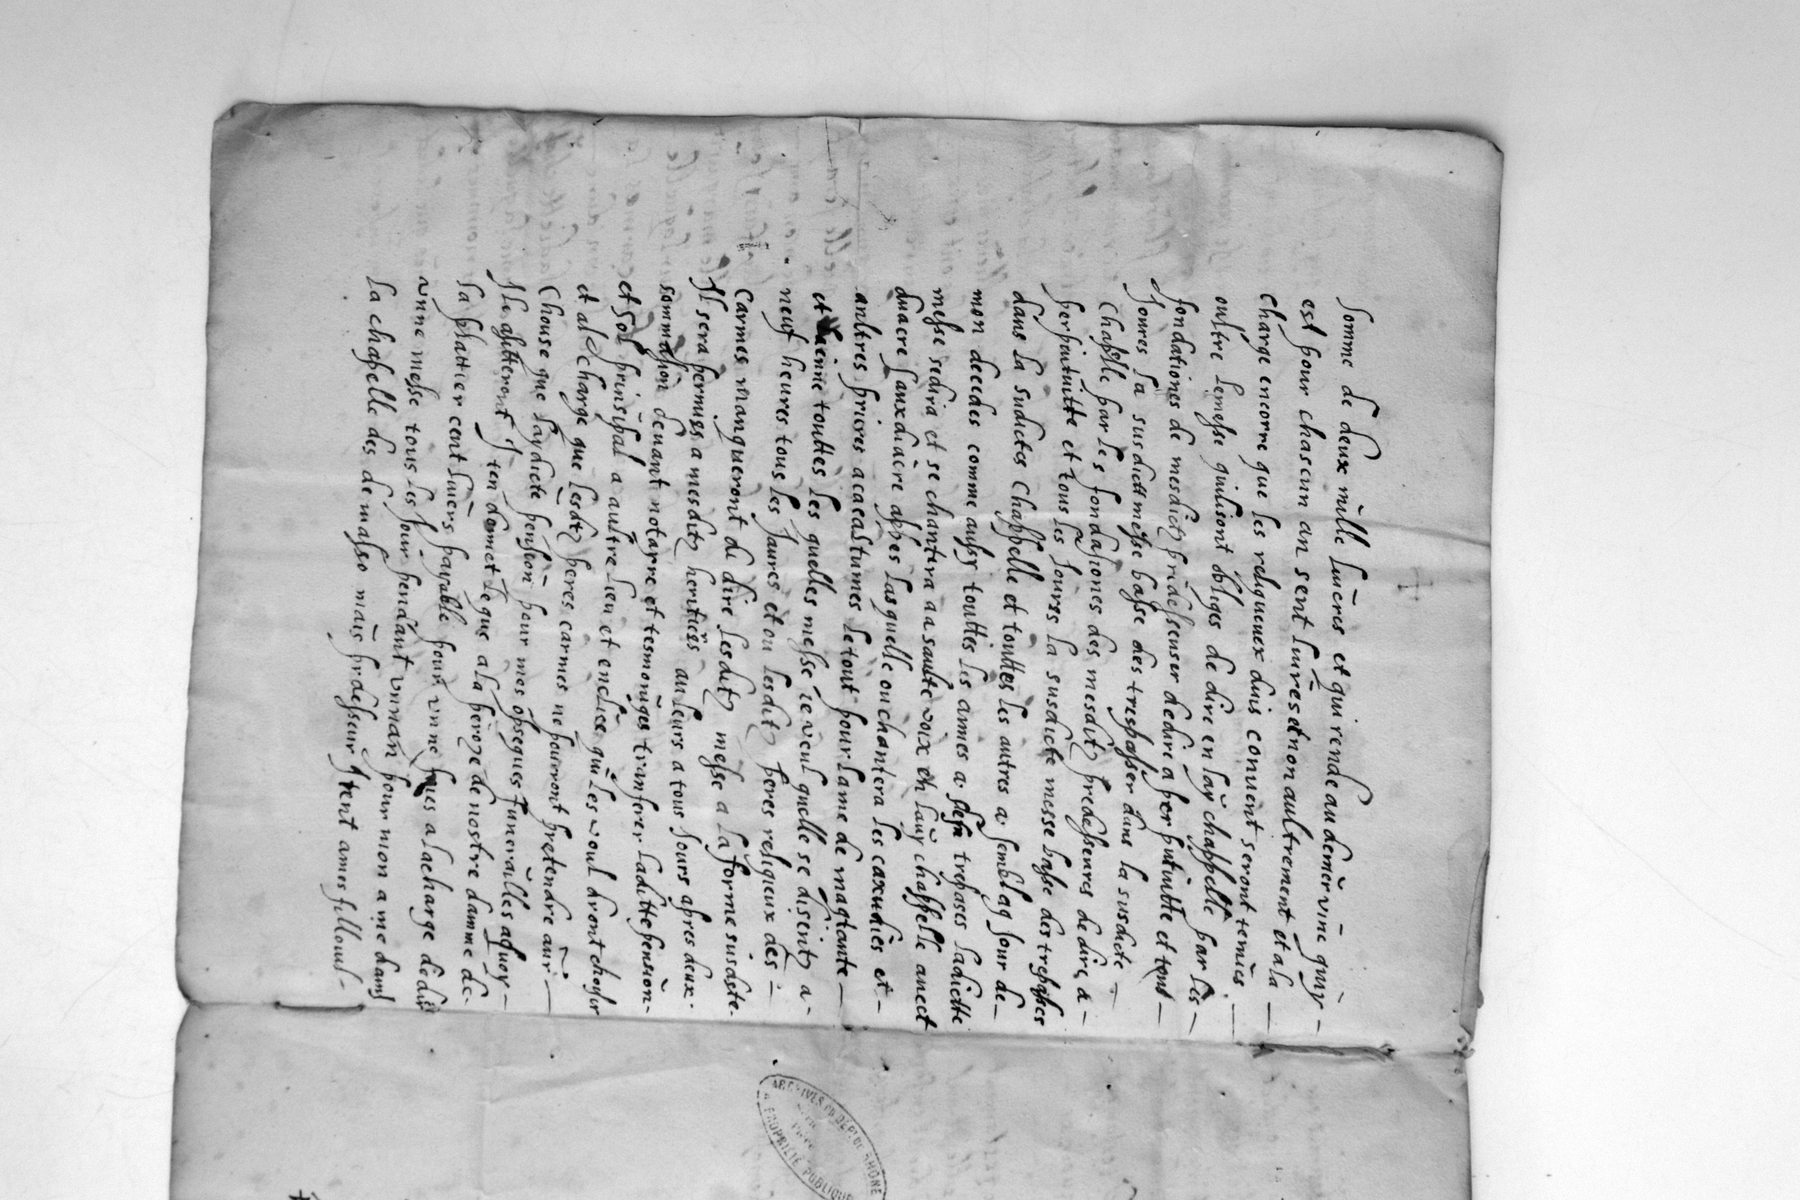 somme de deux mille livres et qui rende au demer vinc quy
est pour chascun an sent livres et non aultrement et a la
charge encorre que les religueux duis convent seront tenues
oustre lemesse quilsont obliges de dire en lay chappelle par les
fondationes de mesdictz predesseuser de dire a perputuitte et tous
Joures la susdict messe basse des trespasser dans la susdicte
chapelle par les fondasiones des mesditz predesseures de dire a
perputuitte et tous les Joures la susdicte messe basse des trespasses
dans la sudictes chappelle et touttes les autres a semblag jour de
mon decedes comme aussy touttes les ames a trepases ladictte
messe se dira et se chantera a aulte voix en lauy chappelle avect
duacre sauxdiacre appes lasquelle ou chantera les et
aultres prieres acaustumes le tout pour lame de magtante
et mienne touttes les quelles messe ie veul quelle se disent a
neuf heures tous les Jaures et ou lesditz peres religieux des
carmes manqueront de dire lesditz messe a la forme susdste
Il sera permies a mesditz heritiers au leurs a tous Jours apres deux
sommasion devant notayre et tesmoinges transferer laditte pension
et sot prinsipal a aultre lieu et enclise qui les voul dront choysir
et a la charge que lesdtz peres carmes ne pouront pretendre aur
chouse que laydicte pension pour mes opseques funerailles aquoy
Ile quitteront Jten domet legue a la peroye de nostre damme de
la plattier cent livers payable pour vnne foues a la charge de dir
vnne messe tous les Jour pendant vnnan pour mon ame dans
la chapelle des de masso mais predesseur Jtent ames fillouls
ARCHIVES DU DEPT DU RHÔNE
PROPRIÉTÉ PUBLIQUE